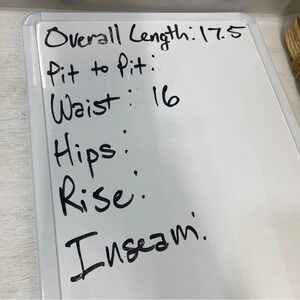 Overall Length: 17.5
Pit to Pit:
Waist: 16
Hips:
Rise:
Inseam: